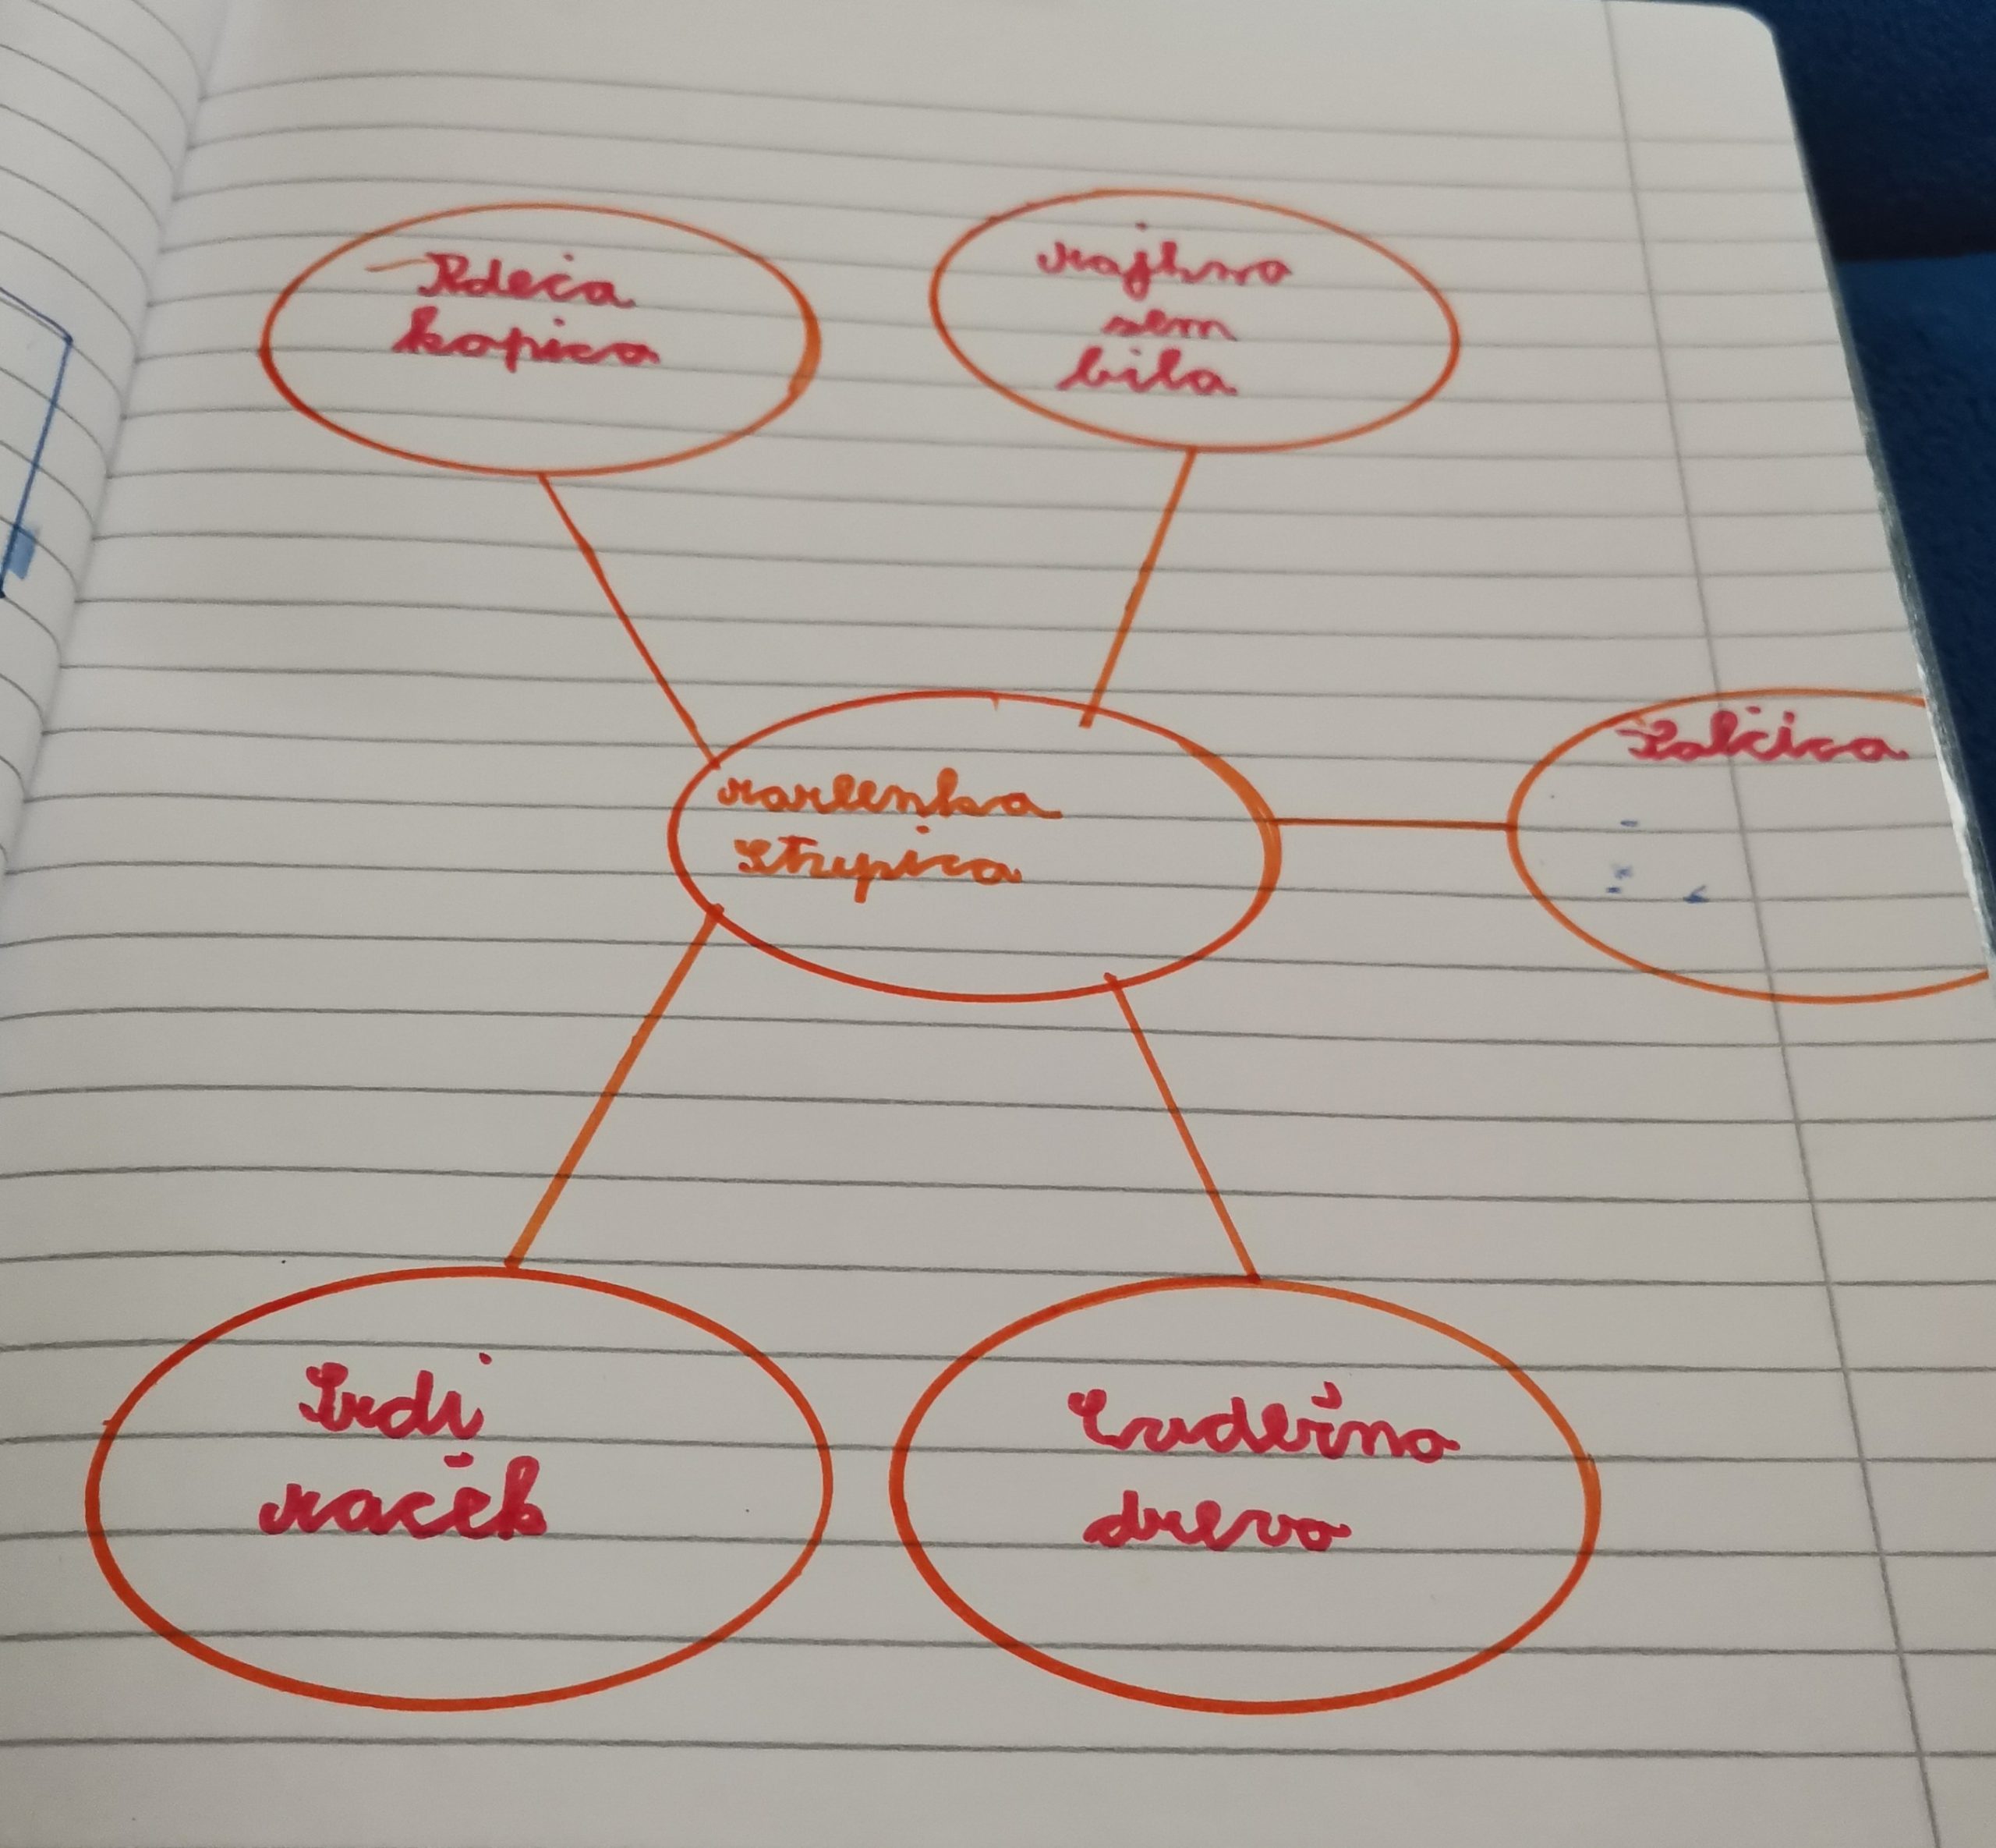 Rdeča
kapica
najhna
sem
bila
Palčica
marlenka
Stupica
Grdi
raček
Čudežno
drevo